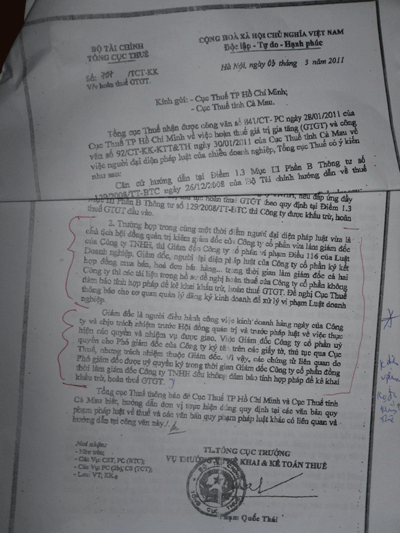 BỘ TÀI CHÍNH
TỔNG CỤC THUẾ
CỘNG HOÀ XÃ HỘI CHỦ NGHĨA VIỆT NAM
Độc lập - Tự do - Hạnh phúc
Số: /TCT-KK
V/v hoàn thuế GTGT.
Hà Nội, ngày 03 tháng 3 năm 2011
Kính gửi: - Cục Thuế TP Hồ Chí Minh;
- Cục Thuế tỉnh Cà Mau.
Tổng cục Thuế nhận được công văn số 941/CT- PC ngày 28/01/2011 của
Cục Thuế TP Hồ Chí Minh về việc hoàn thuế giá trị gia tăng (GTGT) và công
văn số 92/CT-KK-KTT&TH ngày 30/01/2011 của Cục Thuế tỉnh Cà Mau về
việc người đại diện pháp luật của nhiều doanh nghiệp, Tổng cục Thuế có ý kiến
như sau:
Căn cứ hướng dẫn tại Điểm 1.3 Mục III Phần B Thông tư số
129/2008/TT-BTC ngày 26/12/2008 của Bộ Tài chính hướng dẫn về thuế
III Phần B Thông tư số 129/2008/TT-BTC thì Công ty được khấu trừ, hoàn
thuế GTGT đầu vào.
2. Trường hợp trong cùng một thời điểm người đại diện pháp luật vừa là
chủ tịch hội đồng quản trị kiêm giám đốc của Công ty cổ phần vừa làm giám đốc
của Công ty TNHH, thì Giám đốc Công ty cổ phần vi phạm Điều 116 của Luật
Doanh nghiệp. Giám đốc, người đại diện pháp luật của Công ty cổ phần ký kết
hợp đồng mua bán, hoá đơn bán hàng... trong thời gian làm giám đốc cả hai
Công ty thì các tài liệu trong hồ sơ đề nghị hoàn thuế của Công ty cổ phần không
đảm bảo tính hợp pháp để kê khai khấu trừ, hoàn thuế GTGT. Đề nghị Cục Thuế
thông báo cho cơ quan quản lý đăng ký kinh doanh để xử lý vi phạm Luật doanh
nghiệp.
Giám đốc là người điều hành công việc kinh doanh hàng ngày của Công
ty và chịu trách nhiệm trước Hội đồng quản trị và trước pháp luật về việc thực
hiện các quyền và nhiệm vụ được giao. Việc Giám đốc Công ty cổ phần uỷ
quyền cho Phó giám đốc của Công ty ký tên trên các giấy tờ, thủ tục qua Cục
Thuế, nhưng trách nhiệm thuộc Giám đốc. Vì vậy, các chứng từ liên quan do
Phó giám đốc được uỷ quyền ký trong thời gian Giám đốc Công ty cổ phần đồng
thời làm giám đốc Công ty TNHH đều không đảm bảo tính hợp pháp để kê khai
khấu trừ, hoàn thuế GTGT.
Tổng cục Thuế thông báo để Cục Thuế TP Hồ Chí Minh và Cục Thuế tỉnh
Cà Mau biết, hướng dẫn đơn vị thực hiện đúng quy định tại các văn bản quy
phạm pháp luật về thuế và các văn bản quy phạm pháp luật khác có liên quan và
hướng dẫn tại công văn này./.
Nơi nhận:
- Như trên;
- Lưu: VT, KK.
TL.TỔNG CỤC TRƯỞNG
VỤ TRƯỞNG VỤ KÊ KHAI & KẾ TOÁN THUẾ
Phạm Quốc Thái